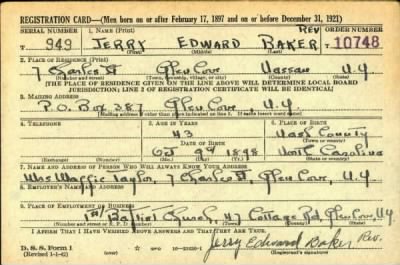 REGISTRATION CARD—(Men born on or after February 17, 1897 and on or before December 31, 1921)
SERIAL NUMBER 1. NAME (Print) ORDER NUMBER
T 949 JERRY EDWARD BAKER REV 10748
(First) (Middle) (Last)
2. PLACE OF RESIDENCE (Print)
7 Charles St Glen Cove Nassau N.Y
(Number and street) (Town, township, village, or city) (County) (State)
[THE PLACE OF RESIDENCE GIVEN ON THE LINE ABOVE WILL DETERMINE LOCAL BOARD
JURISDICTION; LINE 2 OF REGISTRATION CERTIFICATE WILL BE IDENTICAL]
3. MAILING ADDRESS
P.O. Box 387 Glen Cove, N.Y.
[Mailing address if other than place indicated on line 2. If same insert word same]
4. TELEPHONE 5. AGE IN YEARS 6. PLACE OF BIRTH
43 Nash County
DATE OF BIRTH (Town or county)
Oct 1898 North Carolina
(Exchange) (Number) (Mo.) (Day) (Yr.) (State or country)
7. NAME AND ADDRESS OF PERSON WHO WILL ALWAYS KNOW YOUR ADDRESS
Mrs Maggie Taylor, 7 Charles St, Glen Cove, N.Y.
8. EMPLOYER'S NAME AND ADDRESS
9. PLACE OF EMPLOYMENT OR BUSINESS
1st Baptist Church, 47 Cottage Rd, Glen Cove, N.Y.
(Number and street or R. F. D. number) (Town) (County) (State)
I AFFIRM THAT I HAVE VERIFIED ABOVE ANSWERS AND THAT THEY ARE TRUE.
D. S. S. Form 1
(Revised 1-1-42) Jerry Edward Baker Rev.
(Registrant's signature)